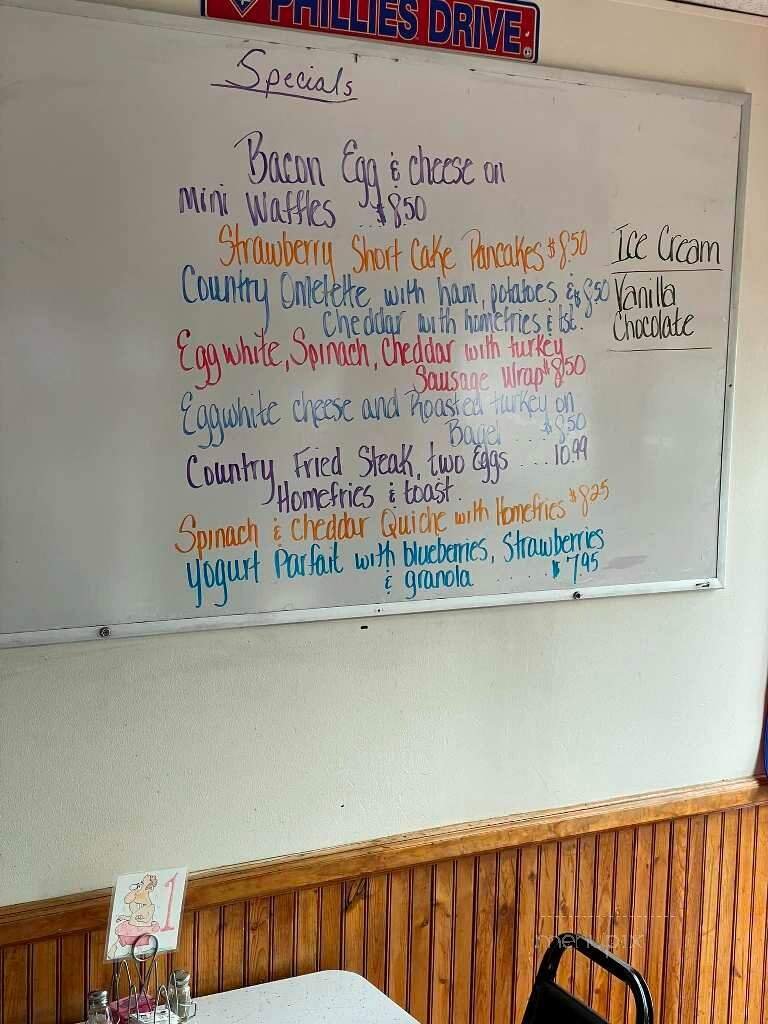 PHILLIES DRIVE
Specials
Bacon Egg & cheese on
Mini Waffles $8.50
Strawberry Short Cake Pancakes $8.50
Country Omelette with ham, potatoes & $8.50
Cheddar with homefries & tst.
Eggwhite, Spinach, Cheddar with turkey
Sausage Wrap $8.50
Eggwhite cheese and Roasted turkey on
Bagel .... $8.50
Country Fried Steak, two Eggs ... 10.99
Homefries & toast.
Spinach & Cheddar Quiche with Homefries $8.25
Yogurt Parfait with blueberries, Strawberries
& granola ..... $7.95
Ice Cream
Vanilla
Chocolate
1
menupix